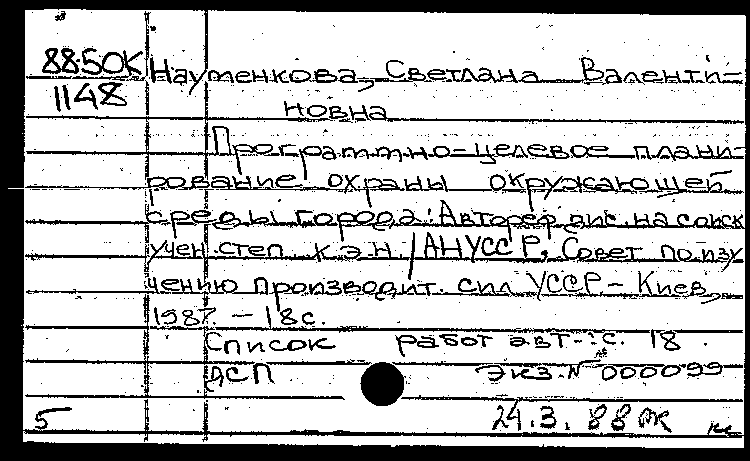 88-50К Наутенкова, Светлана Валенти-
1148
новна
Программно-целевое плани-
рование охраны окружающей
среды города: Автореф дис. на соиск
учен. степ. к.э.н. /АН УССР, Совет по изу
чению производит. сил УССР - Киев,
1987. - 18 с.
Список работ авт.: с. 18.
ДСП экз. № 000099
5 24.3.88